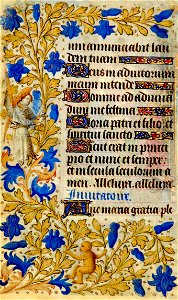 um annunciabit lau
dem tuam
Deus in adiutorium
meum intende
Domine ad adiuuan
dum me festina
Gloria patri et filio et
spiritui sancto
Sicut erat in princi
pio et nunc et semper
et in secula seculorum a
men. Alleluya. alleluya
Aue maria gratia ple